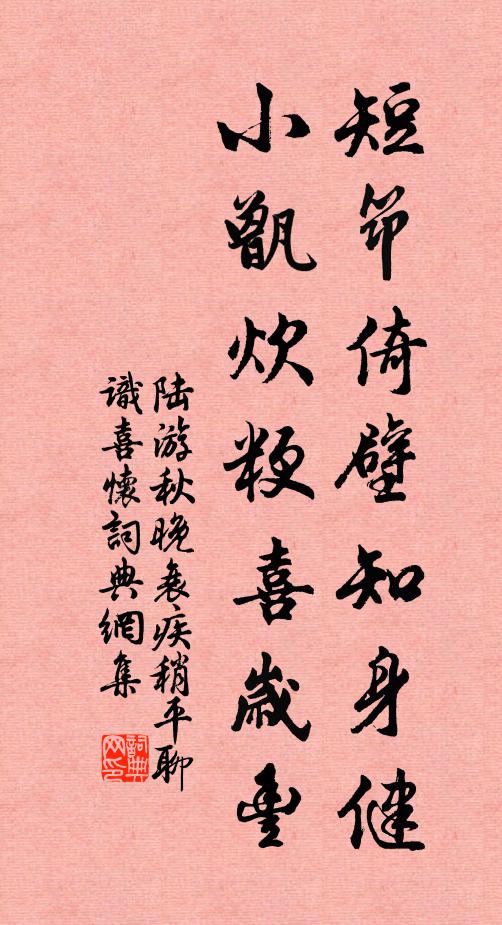 短笻倚壁知身健
小甑炊粳喜歲豐
陆游秋晚衰疾稍平聊
識喜懷詞典網集
詞典
网印